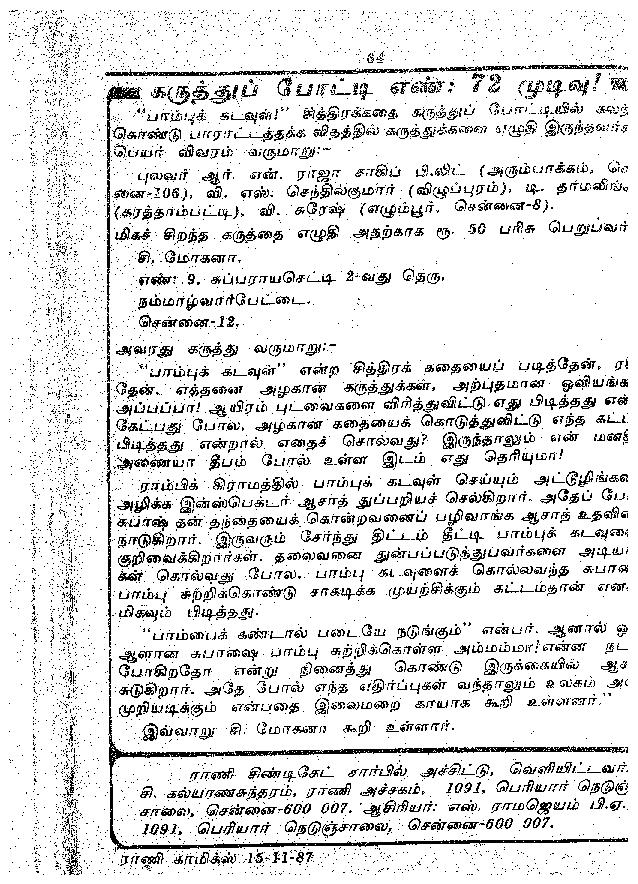 64
கருத்துப் போட்டி எண்: 72 முடிவு!
"பாம்புக் கடவுள்!" சித்திரக்கதை கருத்துப் போட்டியில் கலந்
கொண்டு பாராட்டத்தக்க விதத்தில் கருத்துக்களை எழுதி இருந்தவர்க
பெயர் விவரம் வருமாறு:-
புலவர் ஆர். என். ராஜா சாகிப் பி.லிட் (அரும்பாக்கம், செ
னை-106), வி. எஸ். செந்தில்குமார் (விழுப்புரம்), டி. தர்மலிங்
(கரத்தாம்பட்டி), வி. சுரேஷ் (எழும்பூர், சென்னை-8).
மிகச் சிறந்த கருத்தை எழுதி அதற்காக ரூ. 50 பரிசு பெறுபவர்
சி. மோகனா,
எண்: 9, சுப்பராயசெட்டி 2-வது தெரு,
நம்மாழ்வார்பேட்டை,
சென்னை-12.
அவரது கருத்து வருமாறு:-
"பாம்புக் கடவுள்" என்ற சித்திரக் கதையைப் படித்தேன், ர
தேன். எத்தனை அழகான கருத்துக்கள், அற்புதமான ஓவியங்க
அப்பப்பா! ஆயிரம் புடவைகளை விரித்துவிட்டு எது பிடித்தது என்
கேட்பது போல, அழகான கதையைக் கொடுத்துவிட்டு எந்த கட்ட
பிடித்தது என்றால் எதைச் சொல்வது? இருந்தாலும் என் மனதி
அணையா தீபம் போல் உள்ள இடம் எது தெரியுமா!
ராம்பிக் கிராமத்தில் பாம்புக் கடவுள் செய்யும் அட்டூழிங்கள
அழிக்க இன்ஸ்பெக்டர் ஆசாத் துப்பறியச் செல்கிறார். அதேப் போ
சுபாஷ் தன் தந்தையைக் கொன்றவனைப் பழிவாங்க ஆசாத் உதவின
நாடுகிறார். இருவரும் சேர்ந்து திட்டம் தீட்டி பாம்புக் கடவுளை
குறிவைக்கிறார்கள். தலைவனை துன்பப்படுத்துபவர்களை அடியா
கள் கொல்வது போல, பாம்பு கடவுளைக் கொல்லவந்த சுபாஷ
பாம்பு சுற்றிக்கொண்டு சாகடிக்க முயற்சிக்கும் கட்டம்தான் என
மிகவும் பிடித்தது.
"பாம்பைக் கண்டால் படையே நடுங்கும்" என்பர். ஆனால் ஒ
ஆளான சுபாஷை பாம்பு சுற்றிக்கொள்ள அம்மம்மா! என்ன நட
போகிறதோ என்று நினைத்து கொண்டு இருக்கையில் ஆச
சுடுகிறார். அதே போல் எந்த எதிர்ப்புகள் வந்தாலும் உலகம் அத
முறியடிக்கும் என்பதை இலைமறை காயாக கூறி உள்ளனர்."
இவ்வாறு சி. மோகனா கூறி உள்ளார்.
ராணி சிண்டிகேட் சார்பில் அச்சிட்டு, வெளியிட்டவர்
சி. கல்யாணசுந்தரம், ராணி அச்சகம், 1091, பெரியார் நெடுஞ்
சாலை, சென்னை-600 007. ஆசிரியர்: எஸ். ராமஜெயம் பி.ஏ.
1091, பெரியார் நெடுஞ்சாலை, சென்னை-600 007.
ராணி காமிக்ஸ் 15-11-87